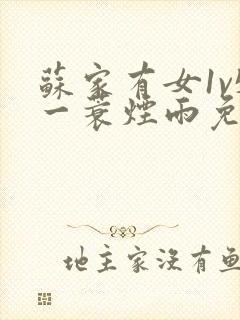 蘇家有女1v
一蓑煙雨免
地主家沒有魚